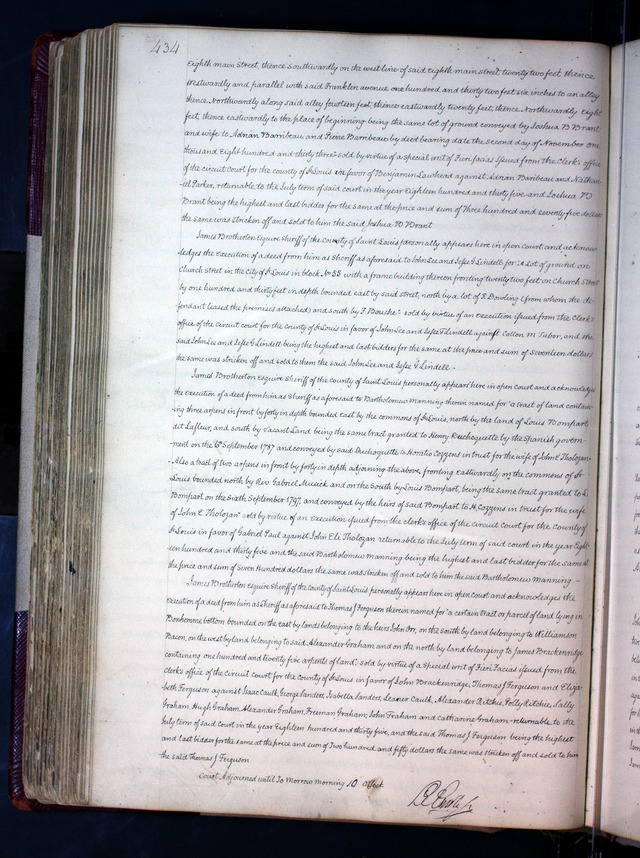 434
Eighth main Street, thence Southwardly on the west line of said Eighth main Street twenty two feet thence
Westwardly and parallel with said Franklin avenue one hundred and thirty two feet six inches to an alley
thence Northwardly along said alley fourteen feet, thence eastwardly twenty feet, thence Northwardly Eight
feet, thence eastwardly to the place of beginning being the same lot of ground conveyed by Joshua B Brant
and wife to Adrian Barribeau and Pierre Barribeau by deed bearing date the second day of November one
thousand Eight hundred and thirty three, sold by virtue of a special writ of Fieri facias issued from the Clerk's office
of the circuit Court for the county of St Louis in favor of Benjamin Lawhead against Adrian Baribeau and Nathan-
iel Parker, returnable to the July term of said court in the year Eighteen hundred and thirty five and Joshua
Brant being the highest and last bidder for the same at the price and sum of Three hundred and seventy five dollars
the same was stricken off and sold to him the said Joshua Brant
James Brotherton Esquire Sheriff of the county of Saint Louis personally appears here in open Court and acknow-
ledges the execution of a deed from him as Sheriff as aforesaid to John Lee and Jesse G Lindell for "A Lot of ground on
Church Street in the city of St Louis in block No 33 with a frame building thereon fronting twenty two feet on Church Street
by one hundred and thirty feet in depth bounded east by said street, north by a lot of S. Dowling (from whom the de-
fendant leased the premises attached) and south by F Bouche" sold by virtue of an execution issued from the clerk's
office of the circuit court for the county of St Louis in favor of John Lee and Jesse G Lindell against Callon M Tabor, and the
said John Lee and Jesse G Lindell being the highest and last bidders for the same at the price and sum of seventeen dollars
the same was stricken off and sold to them the said John Lee and Jesse G Lindell.
James Brotherton Esquire Sheriff of the county of Saint Louis personally appears here in open Court and acknowledges
the execution of a deed from him as Sheriff as aforesaid to Bartholomew Manning therein named for "a tract of land contain-
ing three arpens in front by forty in depth bounded east by the commons of St Louis, north by the land of Louis Bompart
dit Lafleur, and south by vacant Land being the same tract granted to Henry Duchoquette by the Spanish govern-
ment on the 6th September 1797 and conveyed by said Duchoquette to Horatio Cozzens in trust for the wife of John E Tholozan.
Also a tract of two arpens in front by forty in depth adjoining the above, fronting eastwardly on the commons of St
Louis bounded north by Rev. Gabriel Musick and on the South by Louis Bompart, being the same tract granted to L
Bompart on the Sixth September 1797, and conveyed by the heirs of said Bompart to H. Cozzens in trust for the wife
of John E Tholozan" sold by virtue of an execution issued from the clerks office of the circuit court for the County of
St Louis in favor of Gabriel Paul against John Eli Tholozan returnable to the July term of said court in the year Eight-
een hundred and thirty five and the said Bartholomew Manning being the highest and last bidder for the same at
the price and sum of Seven Hundred dollars the same was stricken off and sold to him the said Bartholomew Manning –
James Brotherton Esquire Sheriff of the county of Saint Louis personally appears here in open court and acknowledges the
Execution of a deed from him as Sheriff as aforesaid to Thomas J Ferguson therein named for "a certain tract or parcel of land, lying in
Bonhomme bottom bounded on the east by lands belonging to the heirs John Orr, on the south by land belonging to Williamson
Bacon, on the west by land belonging to said Alexander Graham and on the north by land belonging to James Brackenridge
containing one hundred and twenty five arpents of land; sold by virtue of a special writ of Fieri Facias issued from the
Clerk's office of the circuit court for the county of St Louis in favor of John Brackenridge, Thomas J Ferguson and Eliza-
beth Ferguson against Isaac Caulk, George Sanders, Isabella Sanders, Leaner Caulk, Alexander Ritchie, Polly Ritchie, Sally
Graham, Hugh Graham, Alexander Graham, Freeman Graham, John Graham and Catharine Graham – returnable to the
July term of said Court in the year Eighteen hundred and thirty five, and the said Thomas J Ferguson being the highest
and last bidder for the same at the price and sum of Two hundred and fifty dollars the same was stricken off and sold to him
the said Thomas J Ferguson
Court Adjourned until To Morrow morning 10 oClock